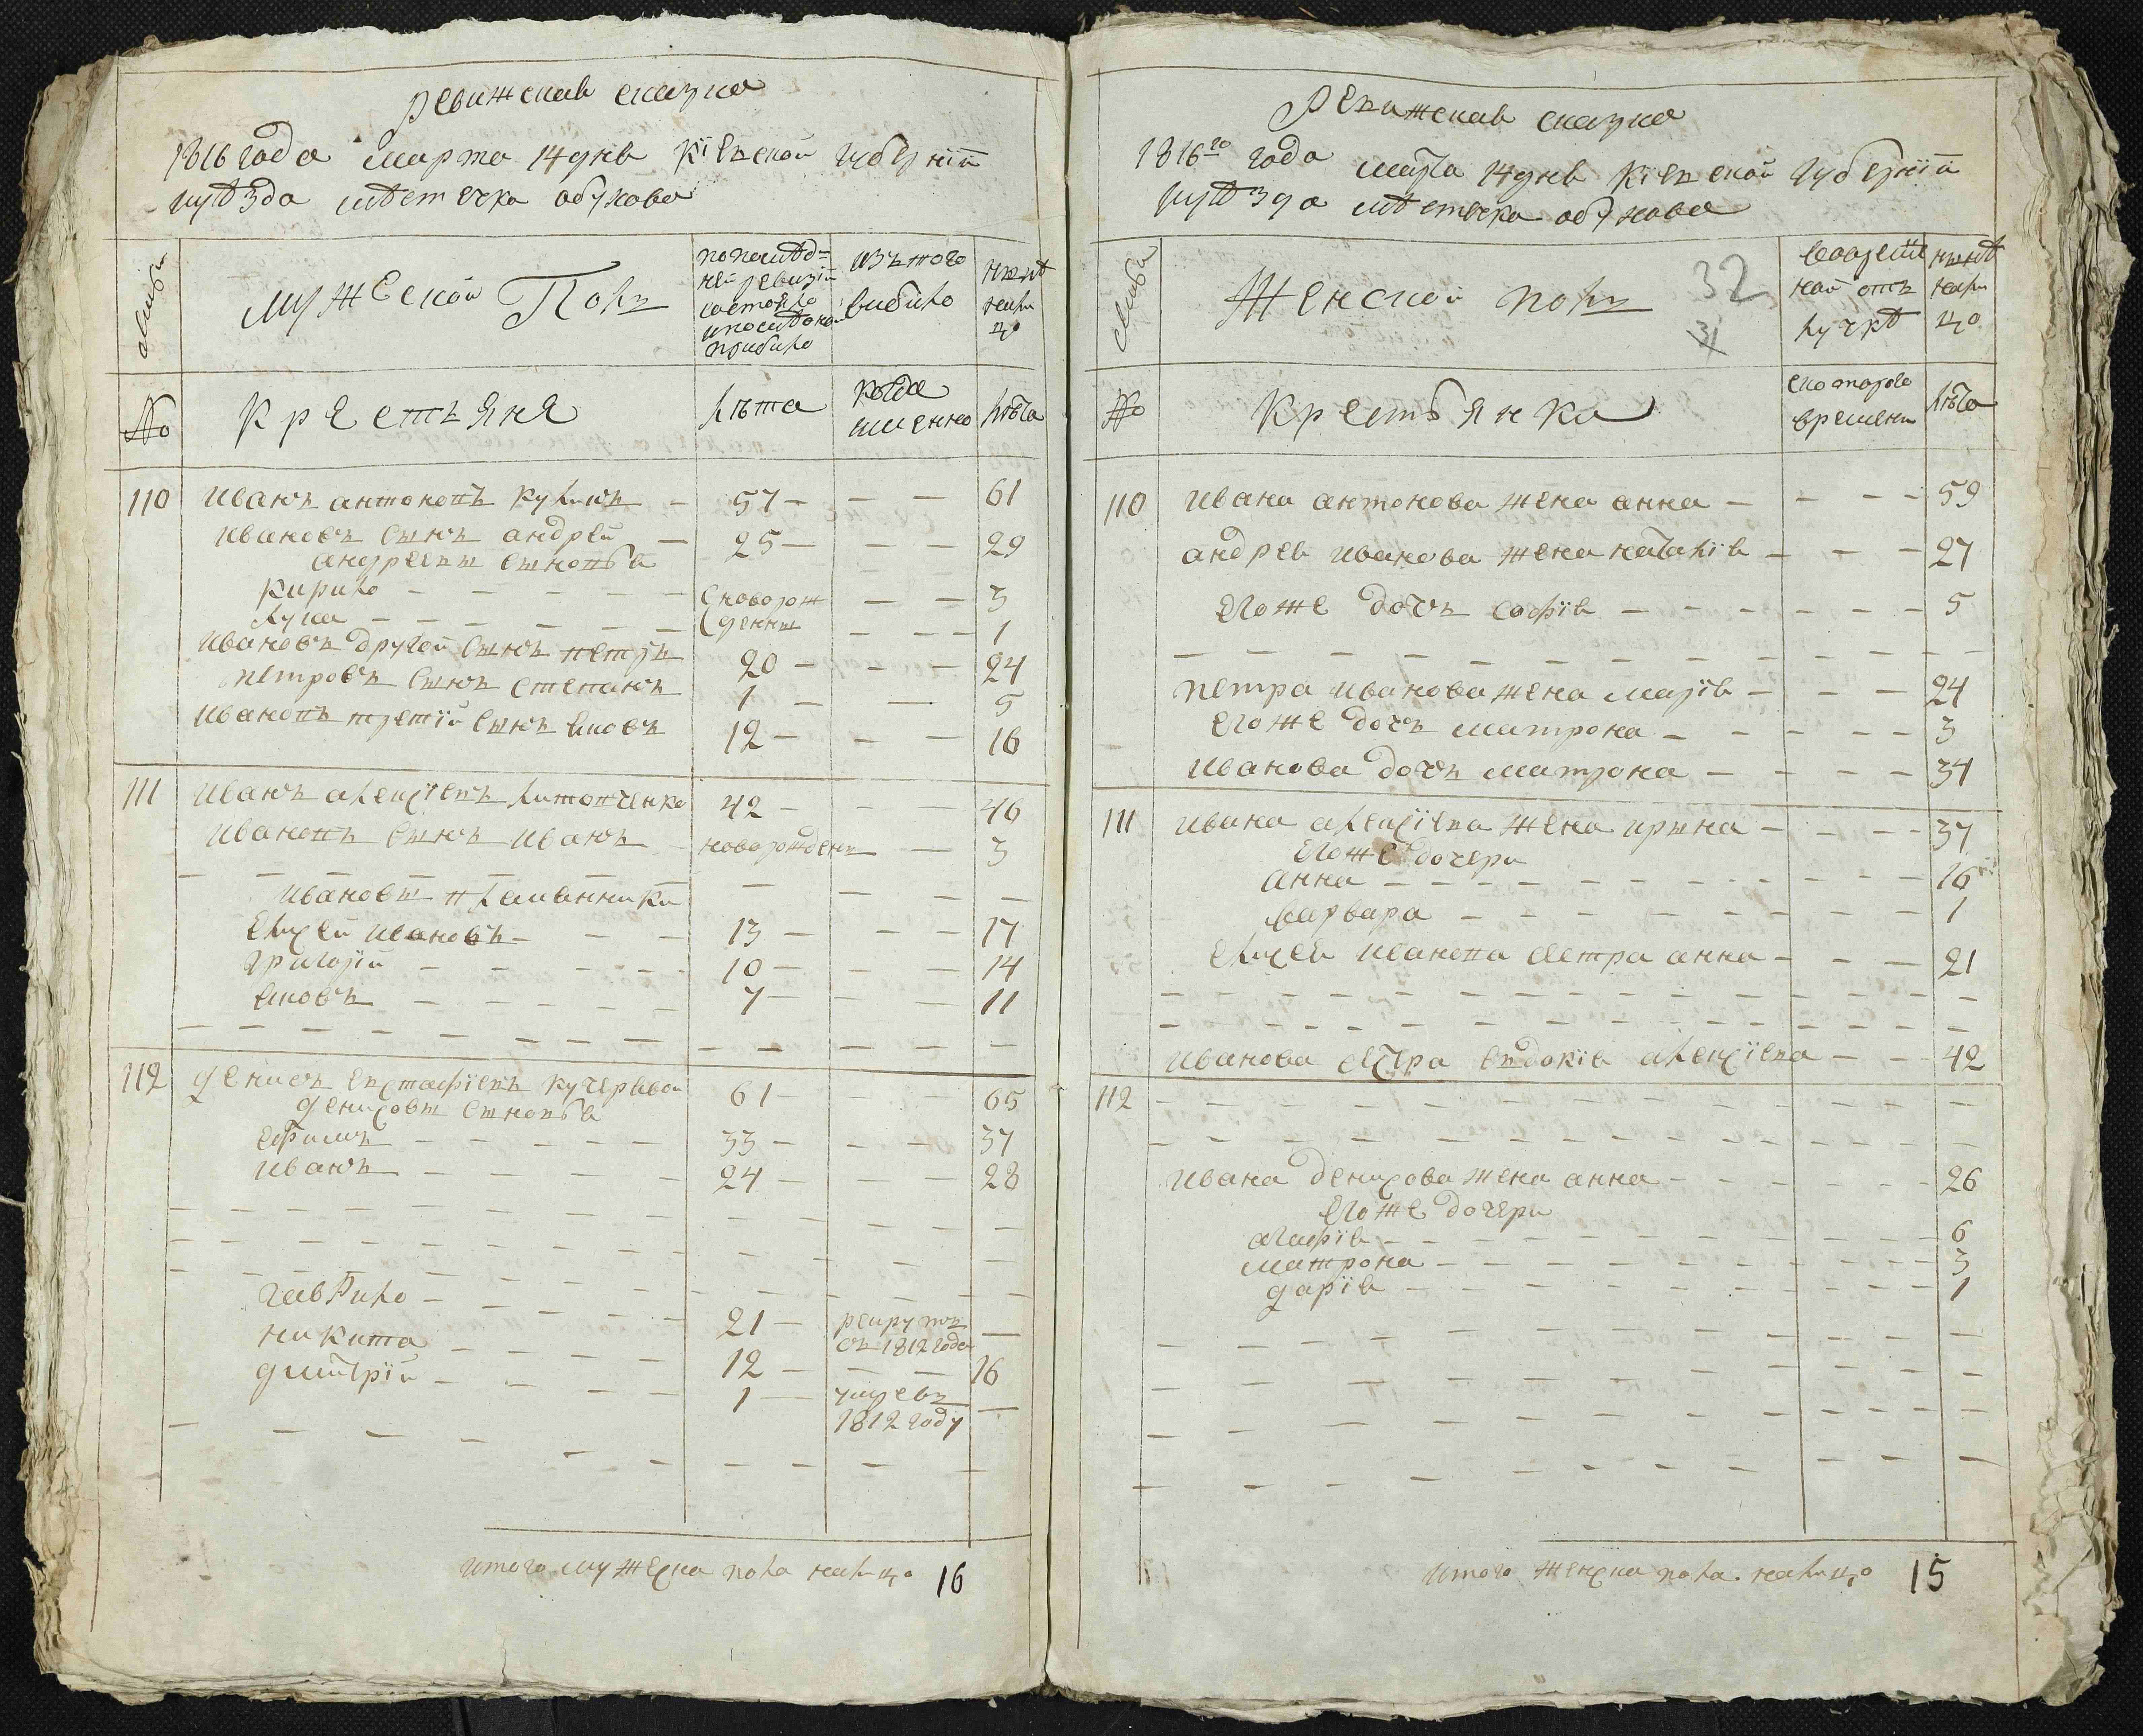 Ревижская сказка
1816 года марта 14 дня Кіевской губерніи
уѣзда мѣстечка обухова
семьи
Мужеской Полъ
по послѣд-
ней ревизіи
состояло
и послѣ оной
прибыло
изъ того
выбыло
нынѣ
нали
цо
№
Крестьяне
лѣта
когда
именно
лѣта
110 Иванъ антоновъ куликъ - 57 - - - 61
Ивановъ сынъ андрей - 25 - - - 29
андреевы сыновья
Кирило - - - новорож - - 3
лука - - - денны - - - 1
Ивановъ другой сынъ петръ 20 - - - 24
петровъ сынъ степанъ 1 - - 5
Ивановъ третій сынъ яковъ 12 - - - 16
111 Иванъ алексіевъ литовченко 42 - - - 46
Ивановъ сынъ Иванъ новорожденъ - 3
Ивановы племянники
елисей ивановъ - - - 13 - - - 17
григорій - - - 10 - - - 14
яковъ - - - 7 - - - 11
112 денисъ евстафіевъ кучерявой 61 - - - 65
денисовы сыновья
ефимъ - - - 33 - - - 37
иванъ - - - 24 - - - 28
гаврило - - - 21 - рекрутъ -
съ 1812 года
никита - - - 12 - - - 16
дмитрій - - - 1 - умре въ -
1812 году
итого мужеска пола налицо 16
Ревижская сказка
1816го года марта 14 дня Кіевской губерніи
уѣзда мѣстечка обухова
семьи
Женской полъ
32
31
во времен
ной от
лучкѣ
нынѣ
нали
цо
№
Крестьянка
с котораго
времени
лѣта
110 Ивана антонова жена анна - - - 59
андрея иванова жена наталія - - - 27
его же дочь софія - - - 5
петра иванова жена марія - - - 24
его же дочь матрона - - - 3
Иванова дочь матрона - - - 34
111 Ивана алексіева жена ирина - - - 37
его же дочери
анна - - - 16
варвара - - - 1
елисея иванова сестра анна - - - 21
Иванова сестра евдокія алексіева - - 42
112
Ивана денисова жена анна - - - 26
его же дочери
агафія - - - 6
матрона - - - 3
дарія - - - 1
итого женска пола налицо 15